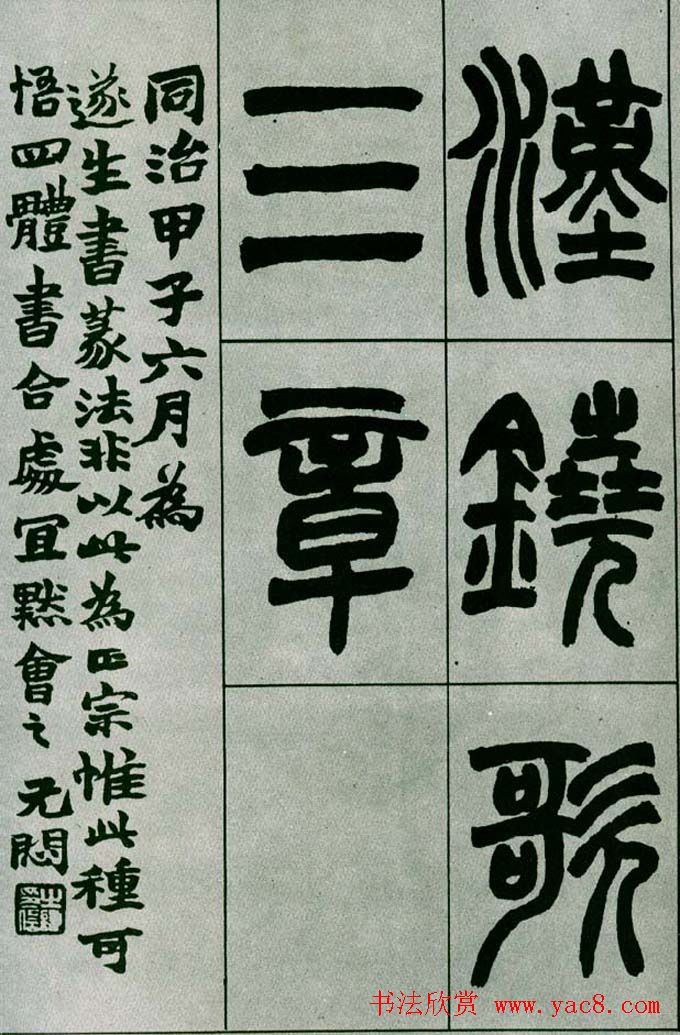 漢鐃歌
三章
同治甲子六月為
遂生書篆法非以此為正宗惟此種可
悟四體書合處宜默會之元悶
书法欣赏 www.yac8.com